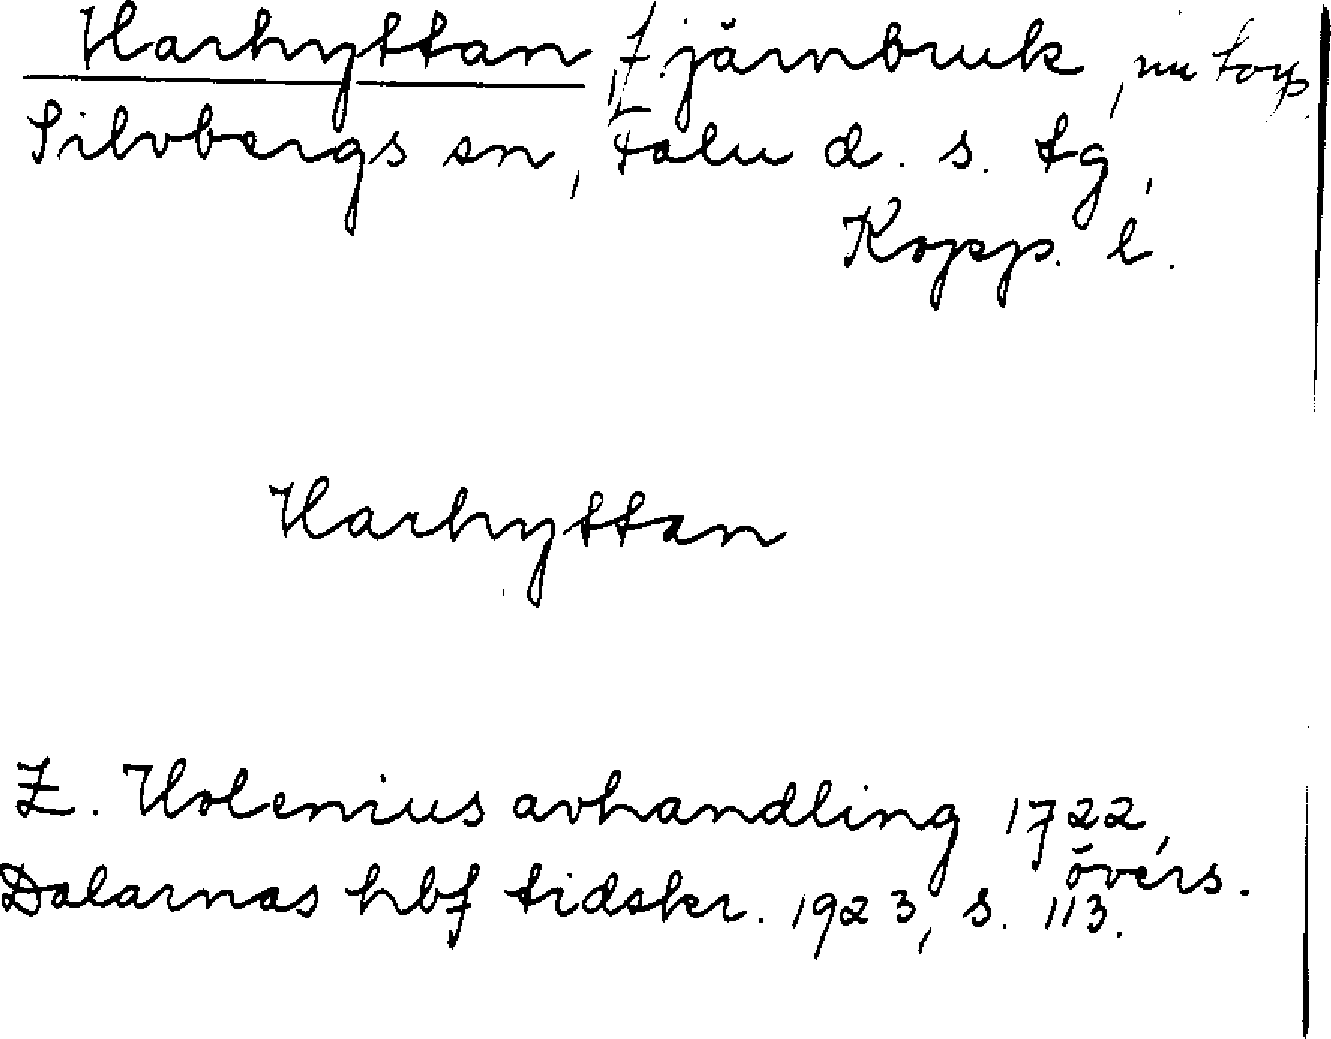 Harhyttan, f. järnbruk, nu torp.
Silvbergs sn, Falu d. s. tg,
Kopp. l.
Harhyttan
E. Holenius avhandling 1722,
övers.
Dalarnas hbf tidskr. 1923, s. 113.